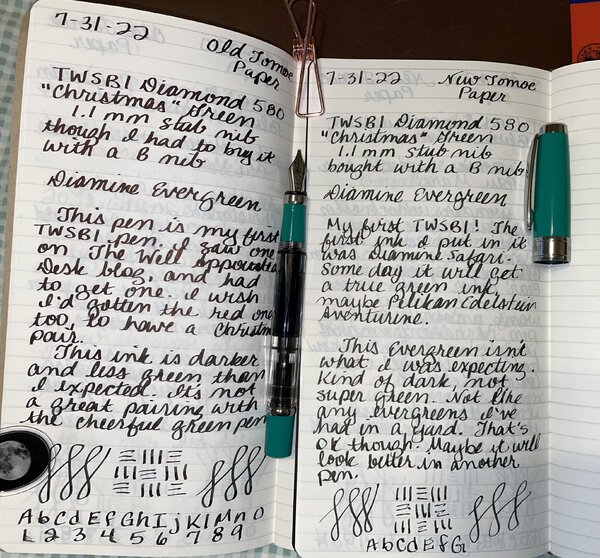 7-31-22
Old Tomoe
Paper
TWSBI Diamond 580
"Christmas" Green
1.1 mm Stub nib
though I had to buy it
with a B nib
Diamine Evergreen
This pen is my first
TWSBI pen. I saw one
on The Well Appointed
Desk blog, and had
to get one. I wish
I'd gotten the red one
too, to have a Christmas
pair.
This ink is darker
and less green than
I expected. Its not
a great pairing with
the cheerful green pen
AbCdEfGhIjKlMnO
1 2 3 4 5 6 7 8 9
7-31-22
New Tomoe
Paper
TWSBI Diamond 580
"Christmas" Green
1.1 mm Stub nib
bought with a B nib
Diamine Evergreen
My first TWSBI! The
first ink I put in it
was Diamine Safari.
Some day it will get
a true green ink,
maybe Pelikan Edelstein
Aventurine.
This Evergreen isn't
what I was expecting.
Kind of dark, not
super green. Not like
any evergreens I've
had in a yard. That's
ok though. Maybe it will
look better in another
pen.
AbCdEfG